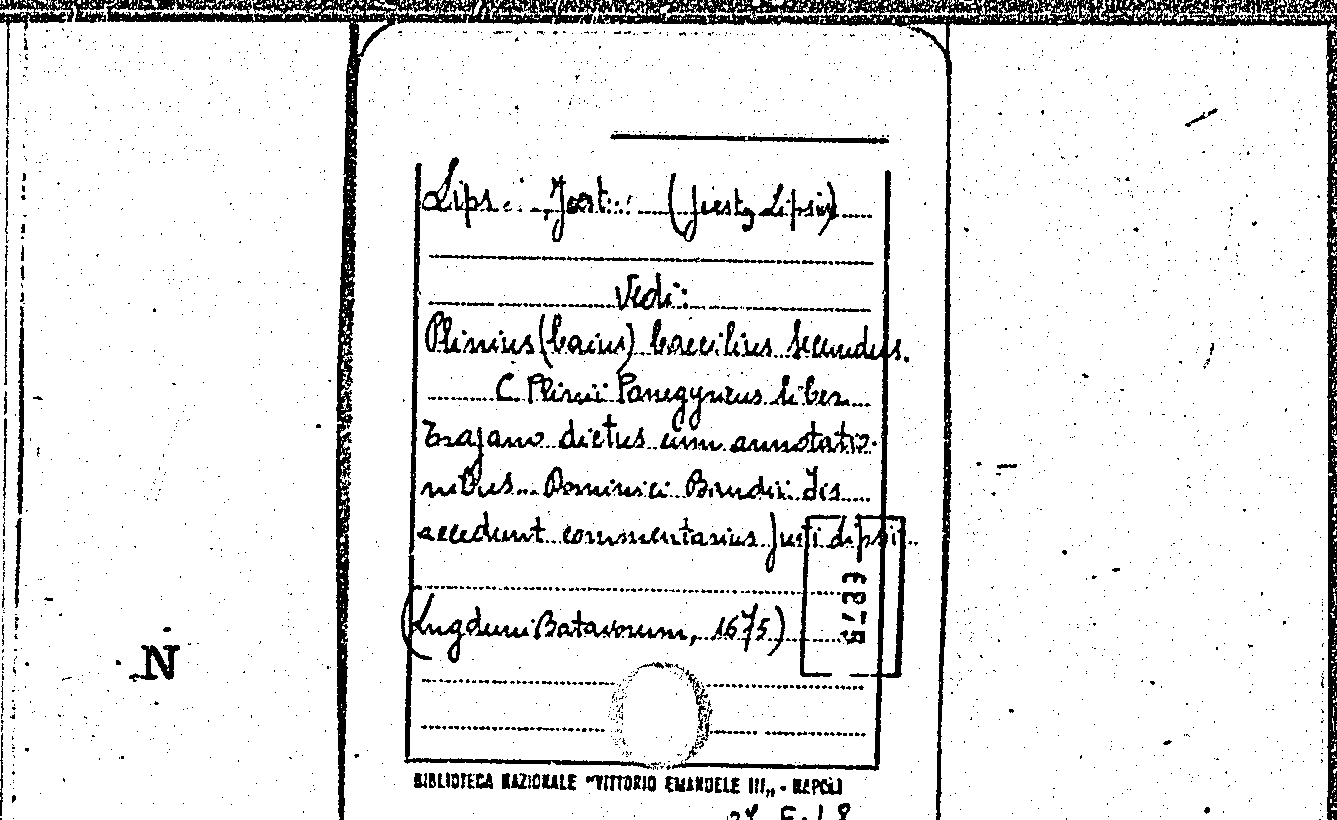 Lips. Jost: (Justq Lipsiq)
Vedi:
Plinius (Caius) Caecilius Secundus.
C Plinii Panegyricus liber
Trajano dictus cum annotatio-
nibus Dominici Baudii Jcs
accedunt commentarius Justi Lipsii
(Lugduni Batavorum, 1675)
N
BIBLIOTECA NAZIONALE "VITTORIO EMANUELE III„ - NAPOLI